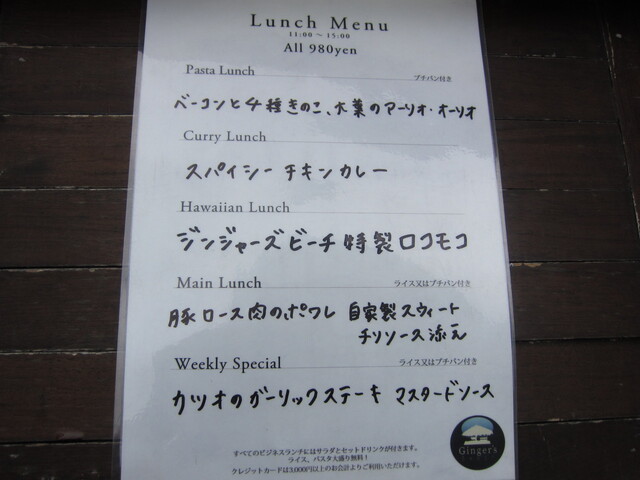 Lunch Menu
11:00 ～ 15:00
All 980yen
Pasta Lunch プチパン付き
ベーコンと4種きのこ、大葉のアーリオ・オーリオ
Curry Lunch
スパイシーチキンカレー
Hawaiian Lunch
ジンジャーズビーチ特製ロコモコ
Main Lunch ライス又はプチパン付き
豚ロース肉のポワレ 自家製スウィート
チリソース添え
Weekly Special ライス又はプチパン付き
カツオのガーリックステーキ マスタードソース
すべてのビジネスランチにはサラダとセットドリンクが付きます。
ライス、パスタ大盛り無料！
クレジットカードは3,000円以上のお会計よりご利用いただけます。
Ginger's